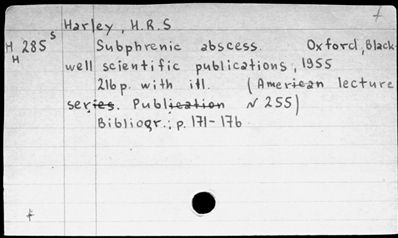 Harley, H.R.S
H 285 s Subphrenic abscess. Oxford, Black-
H well scientific publications, 1955
216p. with ill. (American lecture
series. Publication N 255)
Bibliogr.: p. 171-176